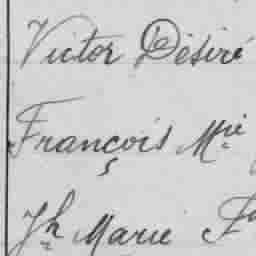 Victor Désiré
François Mie
Jh Marie